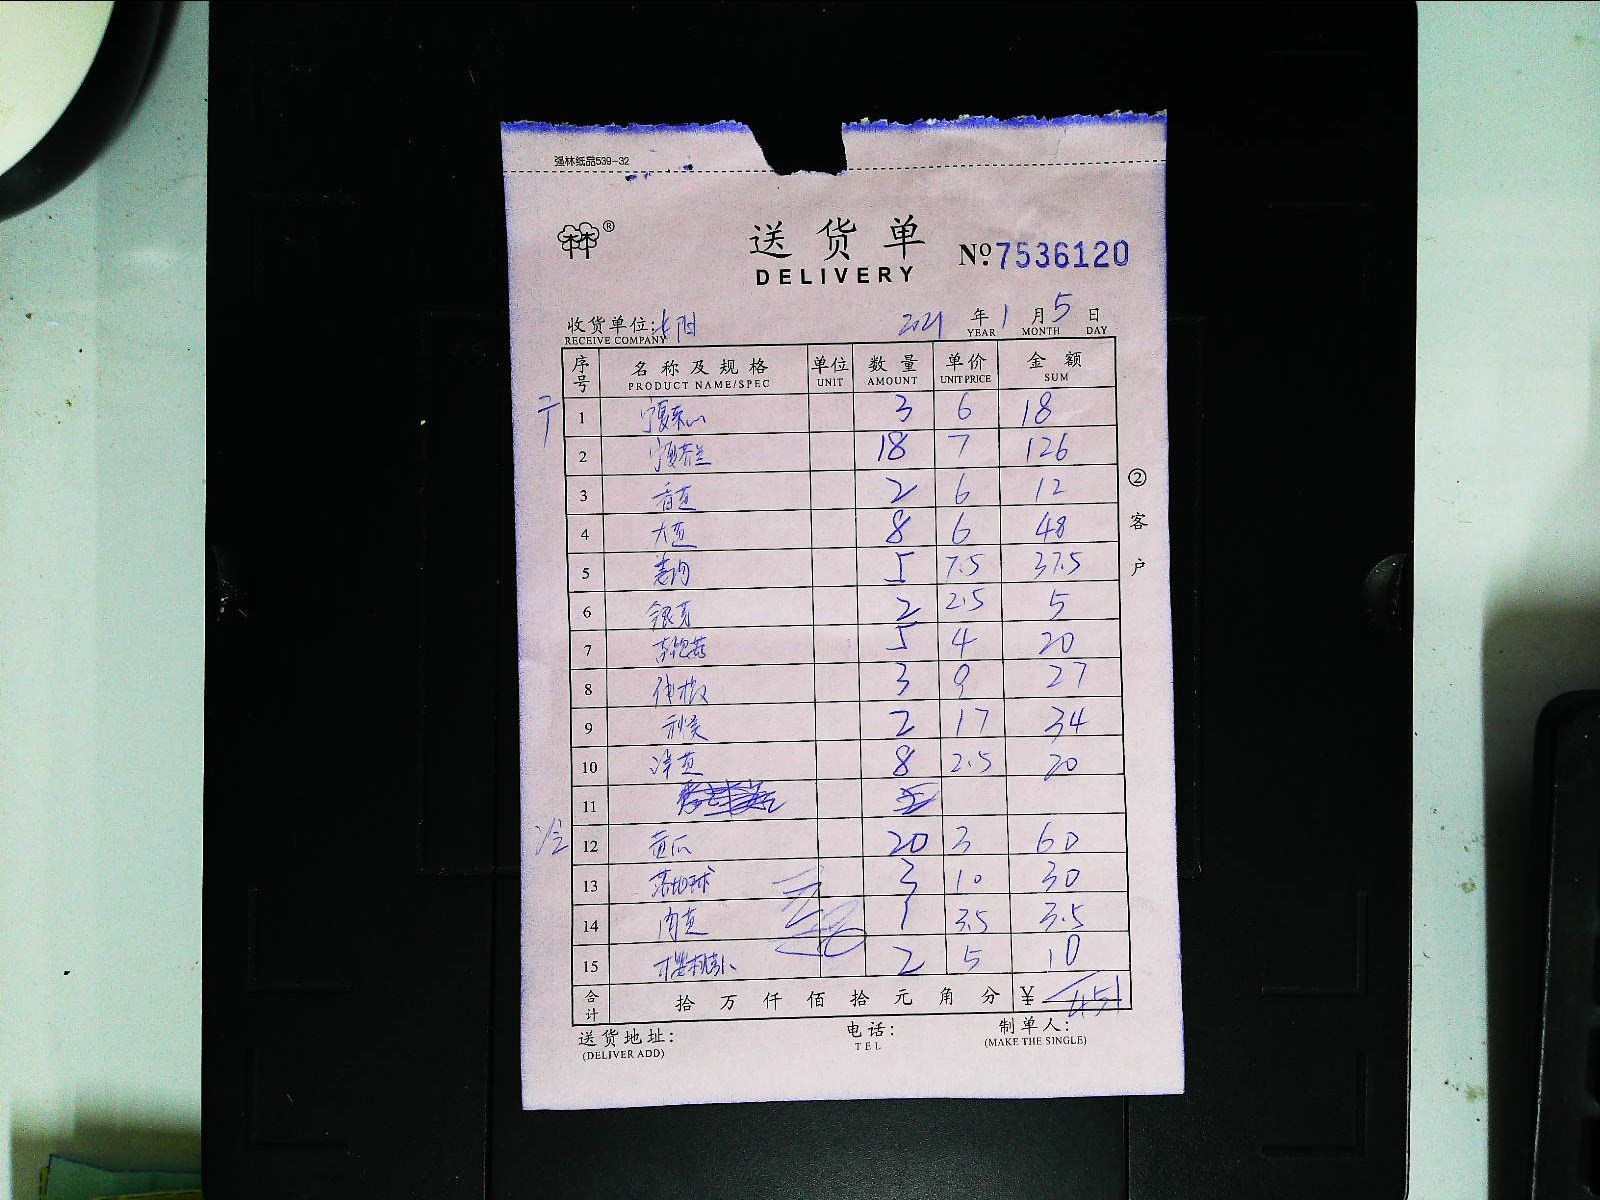 强林纸品539-32
林®
送货单
DELIVERY
Nº:7536120
收货单位: 2021 年 1 月 5 日
RECEIVE COMPANY YEAR MONTH DAY
序号 名称及规格 单位 数量 单价 金额
PRODUCT NAME/SPEC UNIT AMOUNT UNIT PRICE SUM
1 宁夏菜心 3 6 18
2 宁夏芥兰 18 7 126
3 香芹 2 6 12
4 大 8 6 48
5 姜肉 5 7.5 37.5
6 银芽 2 2.5 5
7 5 4 20
8 3 9 27
9 2 17 34
10 8 2.5 20
11
12 黄瓜 20 3 60
13 3 10 30
14 1 3.5 3.5
15 2 5 10
合计 拾 万 仟 佰 拾 元 角 分 ¥ 451
送货地址: 电话: 制单人:
(DELIVER ADD) TEL (MAKE THE SINGLE)
②客户